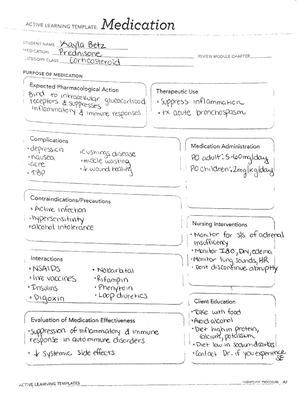 ACTIVE LEARNING TEMPLATE: Medication
STUDENT NAME Kayla Betz
MEDICATION Prednisone
REVIEW MODULE CHAPTER
CATEGORY CLASS Corticosteroid
PURPOSE OF MEDICATION
Expected Pharmacological Action
Bind to intracellular glucocorticoid
receptors & suppresses
inflammatory & immune responses
Therapeutic Use
• Suppress inflammation
• tx acute bronchospasm
Complications
• depression
• nausea
• acne
• ↑BP
• cushings disease
• muscle wasting
• ↓ wound healing
Medication Administration
PO adult: 5-60mg/day
PO children: 2mg/kg/day
Contraindications/Precautions
• Active infection
• hypersensitivity
• alcohol intolerance
Nursing Interventions
• Monitor for s/s of adrenal
insufficency
• Monitor I&O, DW, edema
• Monitor lung sounds, HR
• Dont discontinue abruptly
Interactions
• NSAIDS
• live vaccines
• Insulins
• Digoxin
• Rifampin
• Phenytoin
• Loop diuretics
Client Education
• Take with food
• Avoid alcohol
• Diet high in protein,
calcium, potassium
• Diet low in sodium
• Contact Dr. if you experience
SE
Evaluation of Medication Effectiveness
• suppression of inflammatory & immune
response in autoimmune disorders
• ↓ systemic side effects
ACTIVE LEARNING TEMPLATES
A7